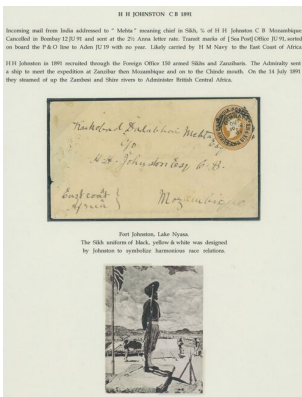 H H JOHNSTON C B 1891
Incoming mail from India addressed to " Mehta " meaning chief in Sikh, % of H H Johnston C B Mozambique
Cancelled in Bombay 12 JU 91 and sent at the 2½ Anna letter rate. Transit marks of [ Sea Post] Office JU 91, sorted
on board the P & O line to Aden JU 19 with no year. Likely carried by H M Navy to the East Coast of Africa
H H Johnston in 1891 recruited through the Foreign Office 150 armed Sikhs and Zanzibaris. The Admiralty sent
a ship to meet the expedition at Zanzibar then Mozambique and on to the Chinde mouth. On the 14 July 1891
they steamed of up the Zambesi and Shire rivers to Administer British Central Africa.
Mehta
c/o
H. H. Johnston Esq C. B.
East coast
Africa
Mozambique
Fort Johnston, Lake Nyasa.
The Sikh uniform of black, yellow & white was designed
by Johnston to symbolize harmonious race relations.